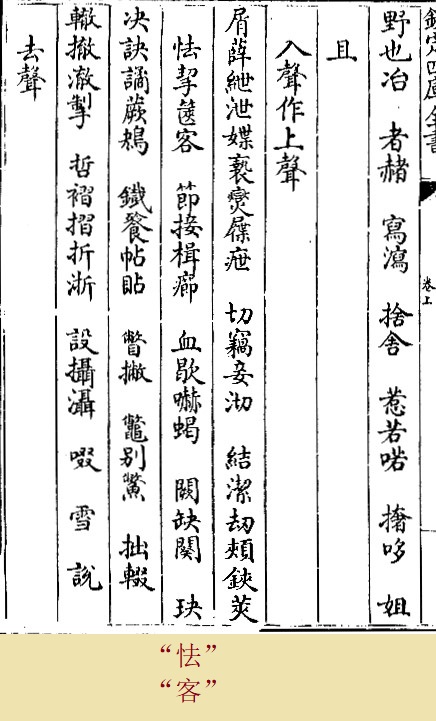 欽定四庫全書
卷上
野也冶 者赭 寫瀉 捨舍 惹若喏 撦哆 姐
且
入聲作上聲
屑薛紲泄媟褻爕屧疶 切竊妾沏 結潔刼頰鋏莢
怯挈篋客 節接楫癤 血歇嚇蝎 闕缺闋 玦
决訣譎蕨鴂 鐵餮帖貼 瞥撇 鼈别鷩 拙輟
轍撤澈掣 哲褶摺折浙 設攝灄 啜 雪 說
去聲
“怯”
“客”